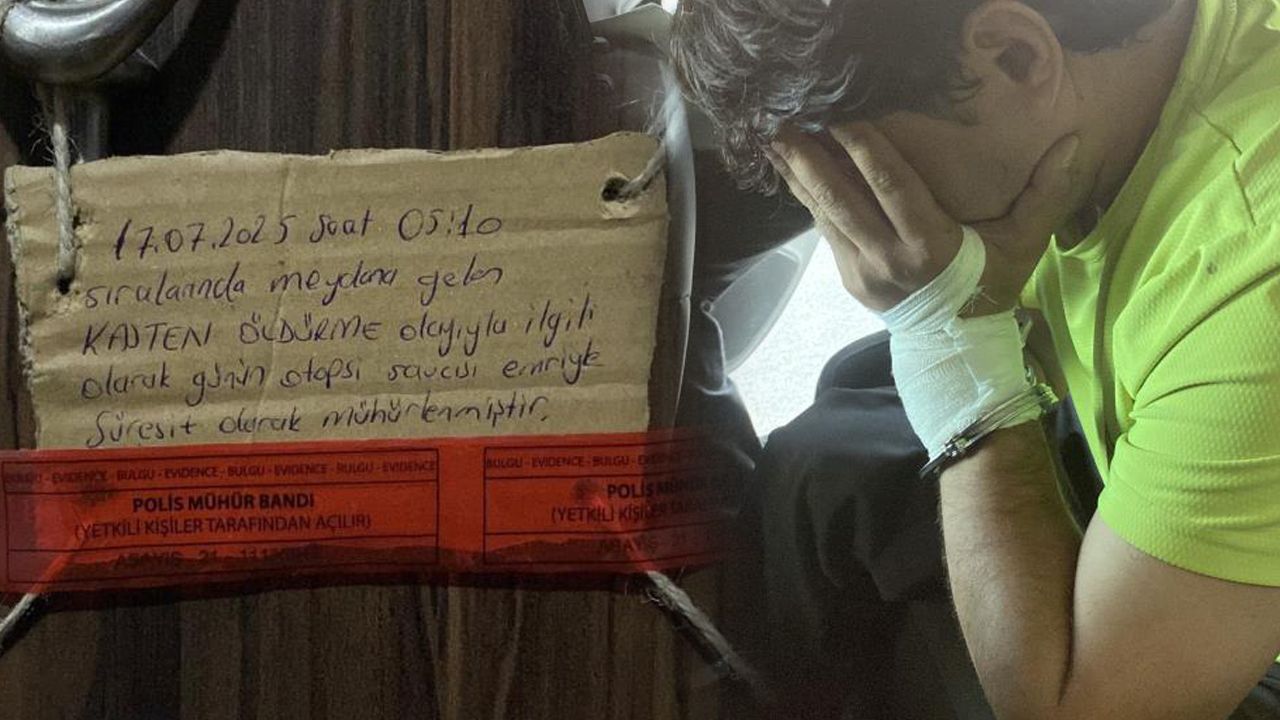 17.07.2025 Saat 05:10
sıralarında meydana gelen
KASTEN ÖLDÜRME olayıyla ilgili
olarak günün otopsi savcısı emriyle
Süresit olarak mühürlenmiştir.
BULGU - EVIDENCE - BULGU - EVIDENCE - BULGU - EVIDENCE - BULGU - EVIDENCE
BULGU - EVIDENCE - BULGU
POLİS MÜHÜR BANDI
POLİS
(YETKİLİ KİŞİLER TARAFINDAN AÇILIR)
(YETKİLİ KİŞİLER TARAFINDAN
ASAYİŞ